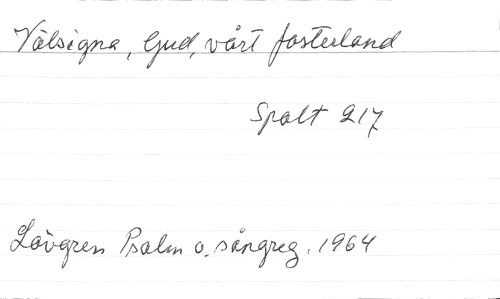 Välsigna, Gud, vårt fosterland
Spalt 217
Lövgren Psalm o. sångreg. 1964